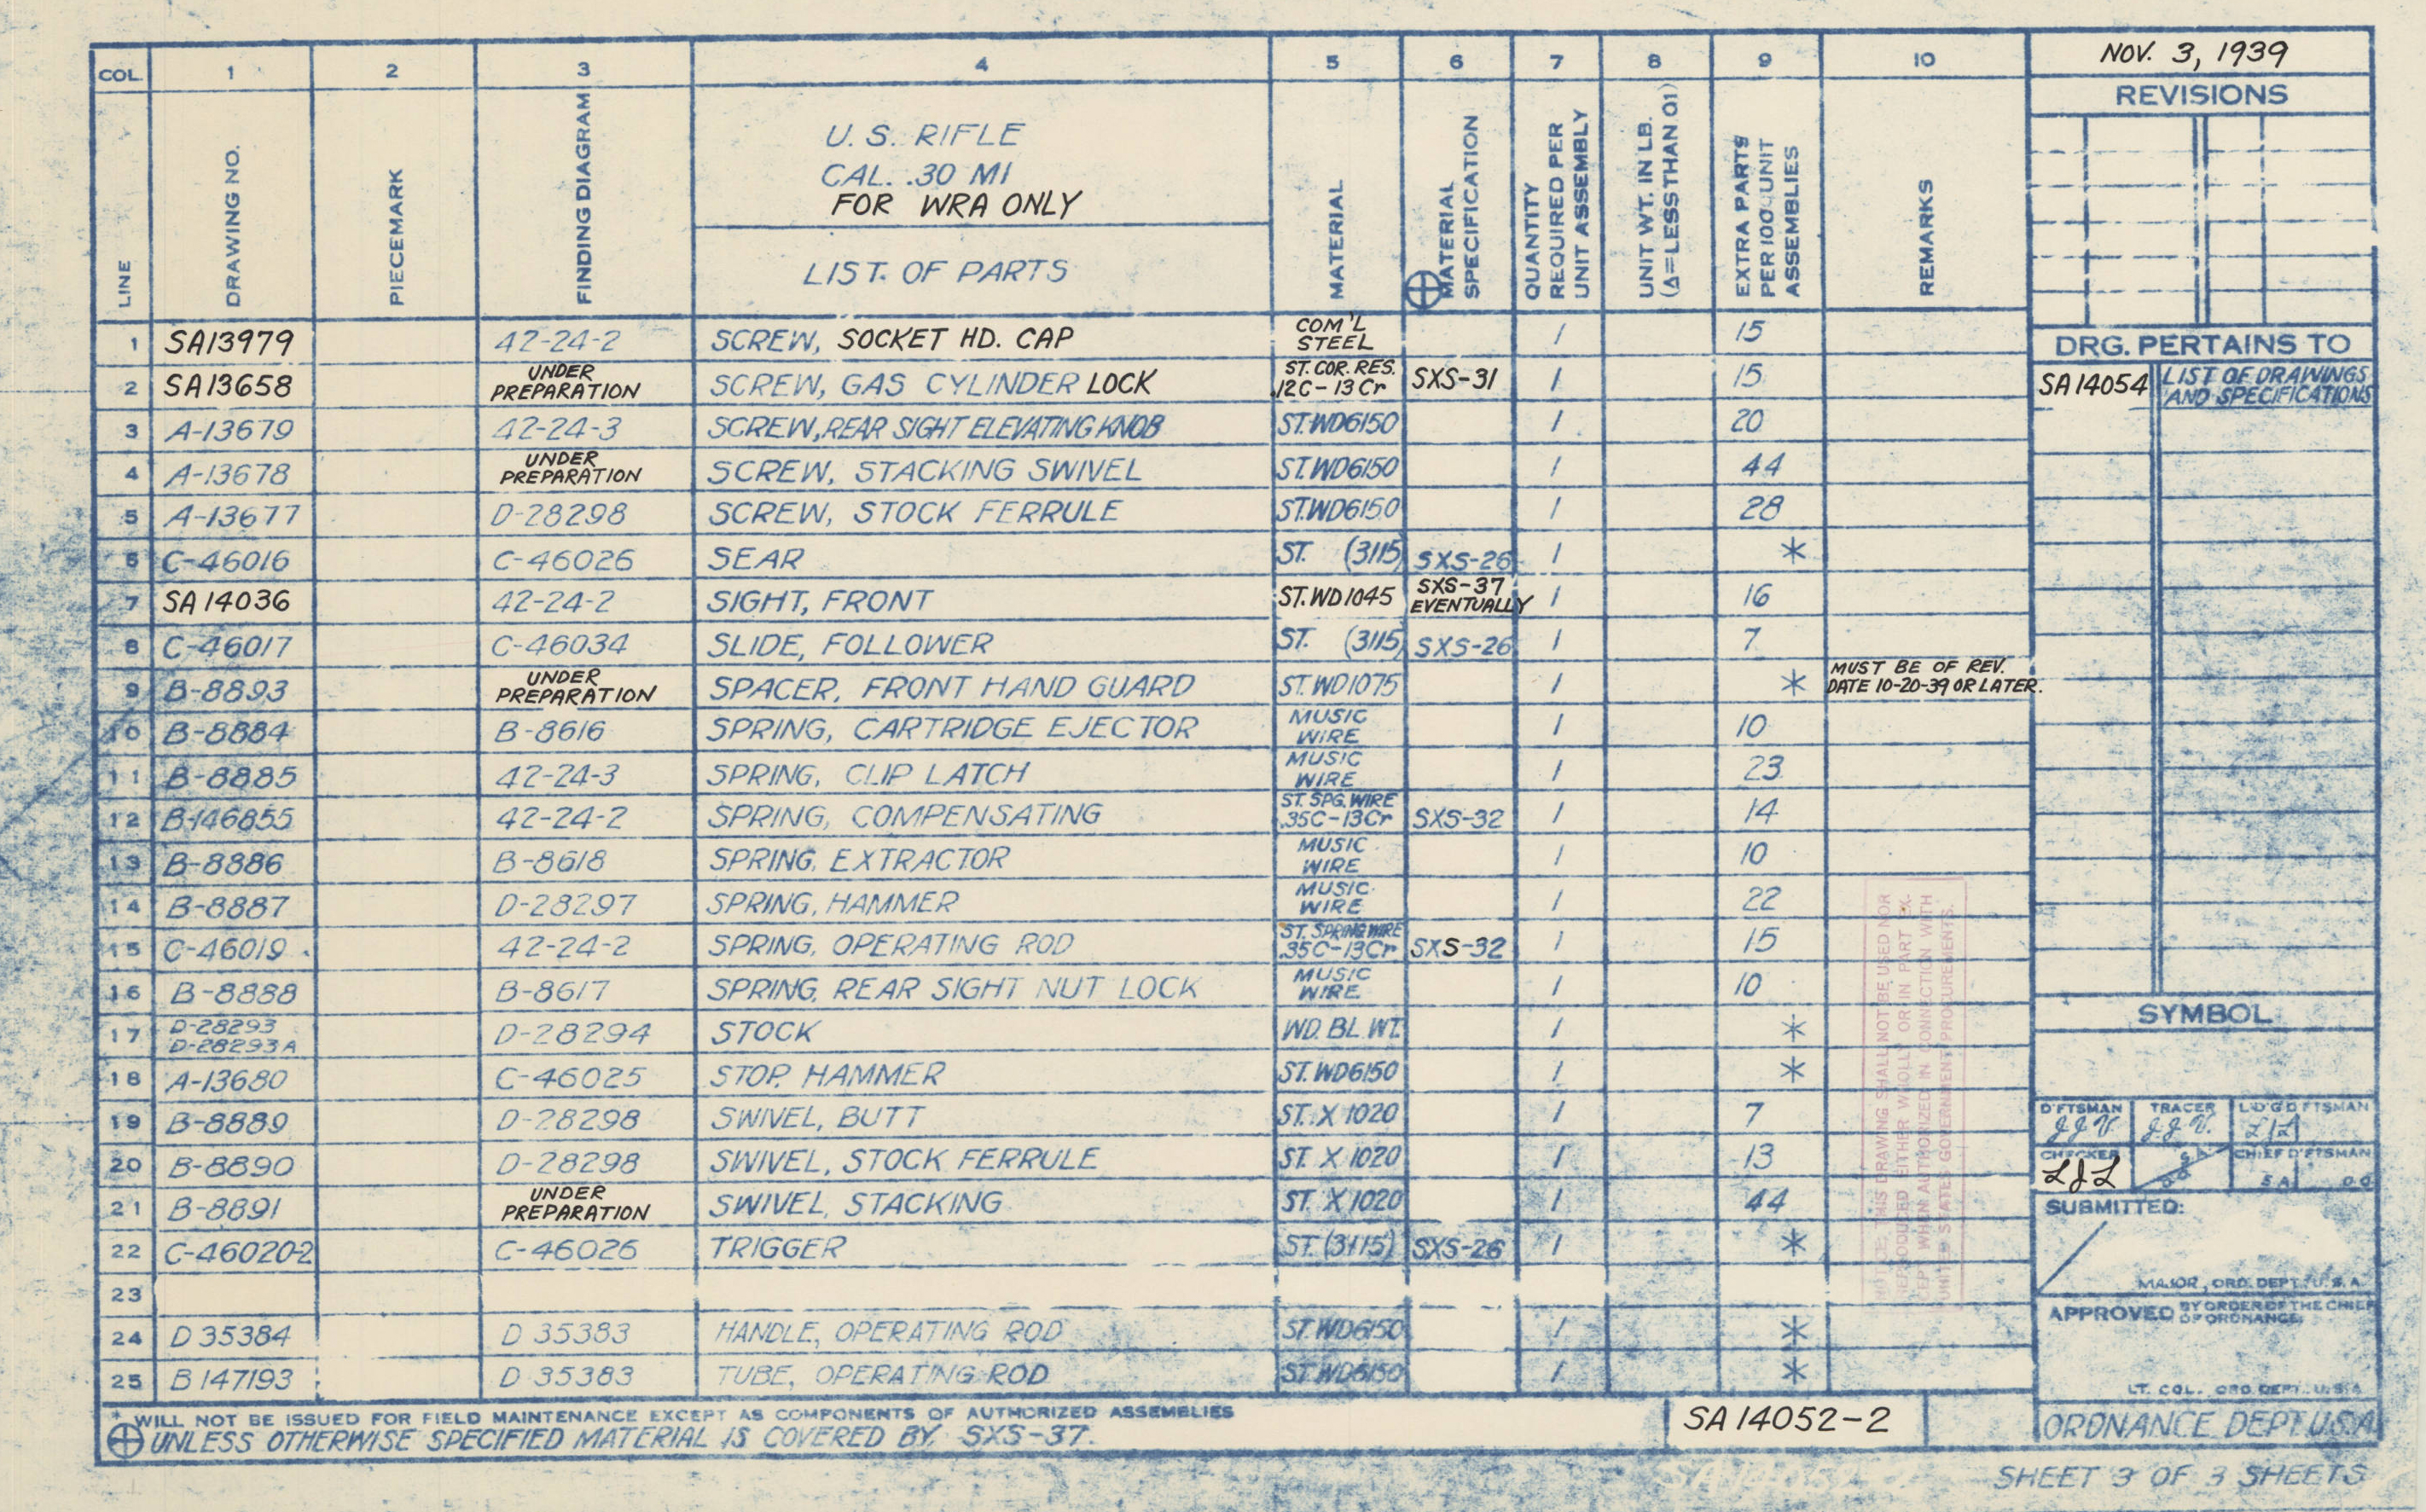 COL. 1 2 3 4 5 6 7 8 9 10
LINE
DRAWING NO.
PIECEMARK
FINDING DIAGRAM
U.S. RIFLE
CAL. .30 M1
FOR WRA ONLY
LIST OF PARTS
MATERIAL
MATERIAL
SPECIFICATION
QUANTITY
REQUIRED PER
UNIT ASSEMBLY
UNIT WT. IN LB.
(Δ=LESS THAN 01)
EXTRA PARTS
PER 100 UNIT
ASSEMBLIES
REMARKS
1 SA13979 42-24-2 SCREW, SOCKET HD. CAP COM'L STEEL 1 15
2 SA13658 UNDER PREPARATION SCREW, GAS CYLINDER LOCK ST. COR. RES. .12C-13Cr SXS-31 1 15
3 A-13679 42-24-3 SCREW, REAR SIGHT ELEVATING KNOB ST.WD6150 1 20
4 A-13678 UNDER PREPARATION SCREW, STACKING SWIVEL ST.WD6150 1 44
5 A-13677 D-28298 SCREW, STOCK FERRULE ST.WD6150 1 28
6 C-46016 C-46026 SEAR ST. (3115) SXS-26 1 *
7 SA14036 42-24-2 SIGHT, FRONT ST.WD1045 SXS-37 EVENTUALLY 1 16
8 C-46017 C-46034 SLIDE, FOLLOWER ST. (3115) SXS-26 1 7
9 B-8893 UNDER PREPARATION SPACER, FRONT HAND GUARD ST.WD1075 1 * MUST BE OF REV. DATE 10-20-39 OR LATER.
10 B-8884 B-8616 SPRING, CARTRIDGE EJECTOR MUSIC WIRE 1 10
11 B-8885 42-24-3 SPRING, CLIP LATCH MUSIC WIRE 1 23
12 B-146855 42-24-2 SPRING, COMPENSATING ST. SPG. WIRE .35C-13Cr SXS-32 1 14
13 B-8886 B-8618 SPRING, EXTRACTOR MUSIC WIRE 1 10
14 B-8887 D-28297 SPRING, HAMMER MUSIC WIRE 1 22
15 C-46019 42-24-2 SPRING, OPERATING ROD ST. SPRING WIRE .35C-13Cr SXS-32 1 15
16 B-8888 B-8617 SPRING, REAR SIGHT NUT LOCK MUSIC WIRE 1 10
17 D-28293 D-28293A D-28294 STOCK WD. BL. WT. 1 *
18 A-13680 C-46025 STOP, HAMMER ST.WD6150 1 *
19 B-8889 D-28298 SWIVEL, BUTT ST. X 1020 1 7
20 B-8890 D-28298 SWIVEL, STOCK FERRULE ST. X 1020 1 13
21 B-8891 UNDER PREPARATION SWIVEL, STACKING ST. X 1020 1 44
22 C-46020-2 C-46026 TRIGGER ST. (3115) SXS-26 1 *
23
24 D 35384 D 35383 HANDLE, OPERATING ROD ST.WD6150 1 *
25 B 147193 D 35383 TUBE, OPERATING ROD ST.WD6150 1 *
* WILL NOT BE ISSUED FOR FIELD MAINTENANCE EXCEPT AS COMPONENTS OF AUTHORIZED ASSEMBLIES
⊕ UNLESS OTHERWISE SPECIFIED MATERIAL IS COVERED BY SXS-37.
SA14052-2
THIS DRAWING SHALL NOT BE USED NOR
REPRODUCED EITHER WHOLLY OR IN PART EX-
CEPT WHEN AUTHORIZED IN CONNECTION WITH
UNITED STATES GOVERNMENT PROCUREMENTS.
NOV. 3, 1939
REVISIONS
DRG. PERTAINS TO
SA14054 LIST OF DRAWINGS
AND SPECIFICATIONS
SYMBOL
D'FTSMAN TRACER L'D'G D'FTSMAN
J.J.V. J.J.V.
CHECKER CHIEF D'FTSMAN
LJL S.A. O.O.
SUBMITTED:
MAJOR, ORD. DEPT. U.S.A.
APPROVED BY ORDER OF THE CHIEF
OF ORDNANCE.
LT. COL. ORD. DEPT. U.S.A.
ORDNANCE DEPT. U.S.A.
SHEET 3 OF 3 SHEETS